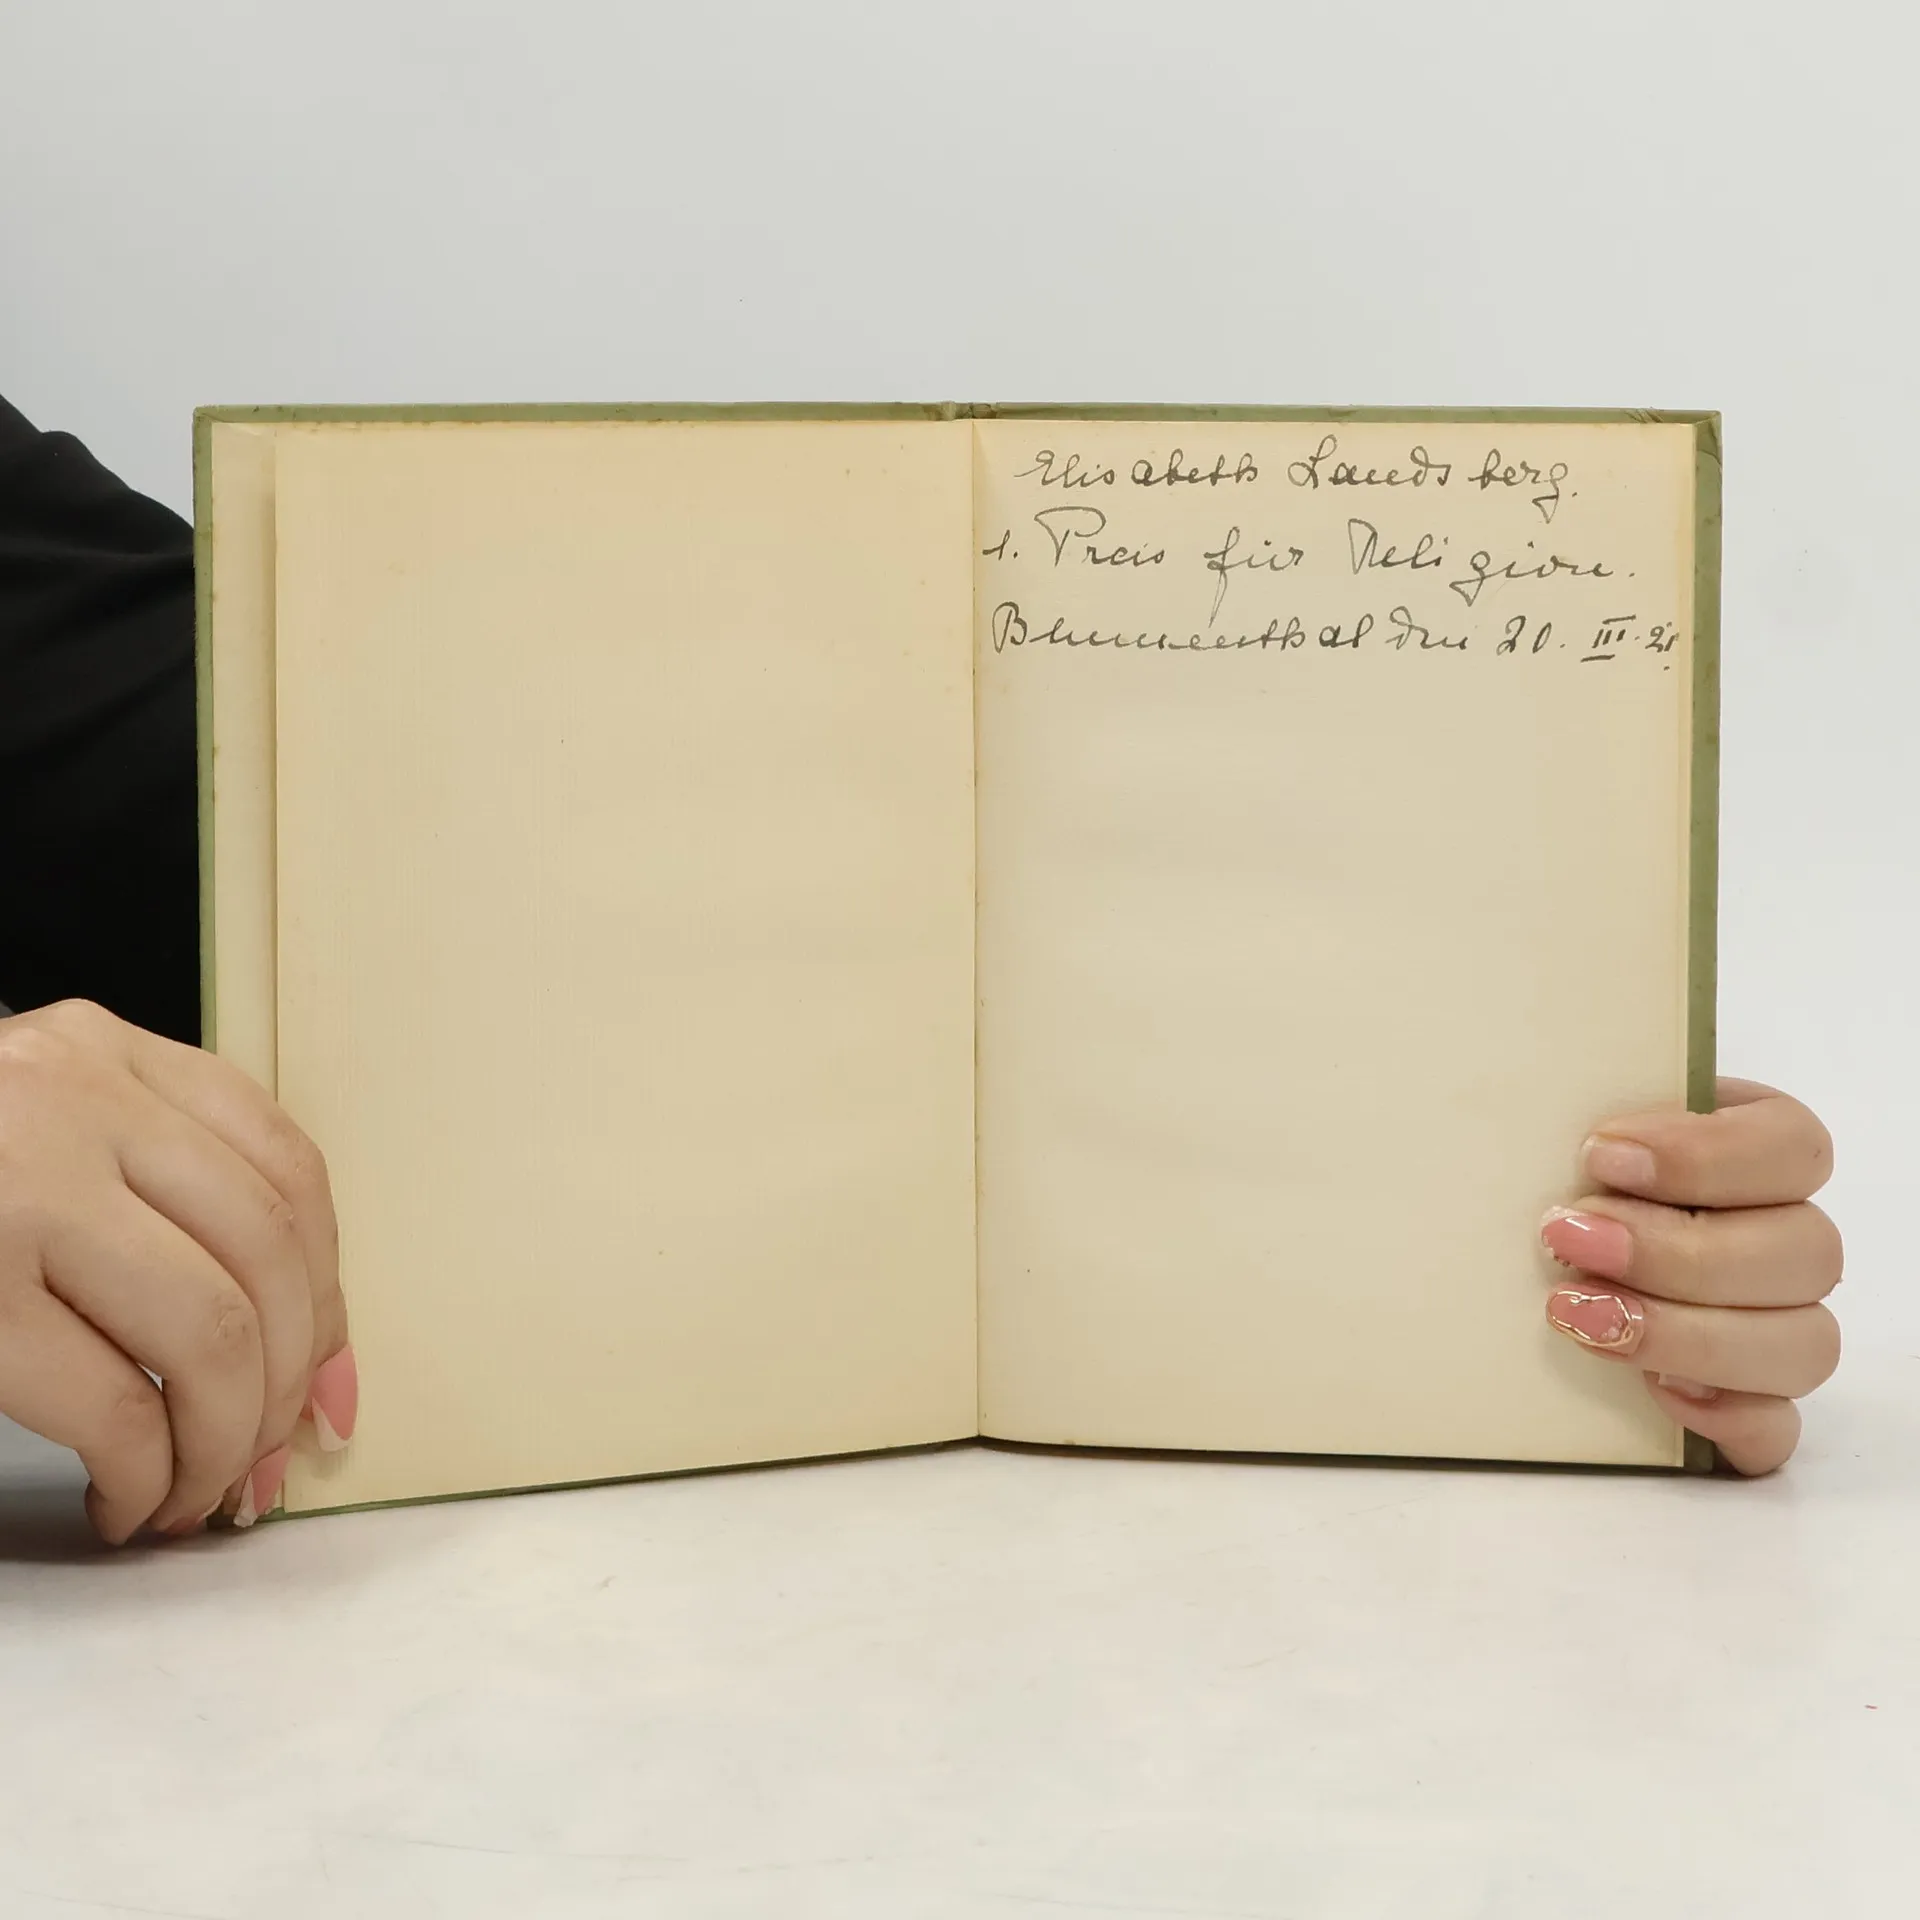 Elisabeth Landsberg.
1. Preis für Religion.
Blumenthal den 20. III. 21.